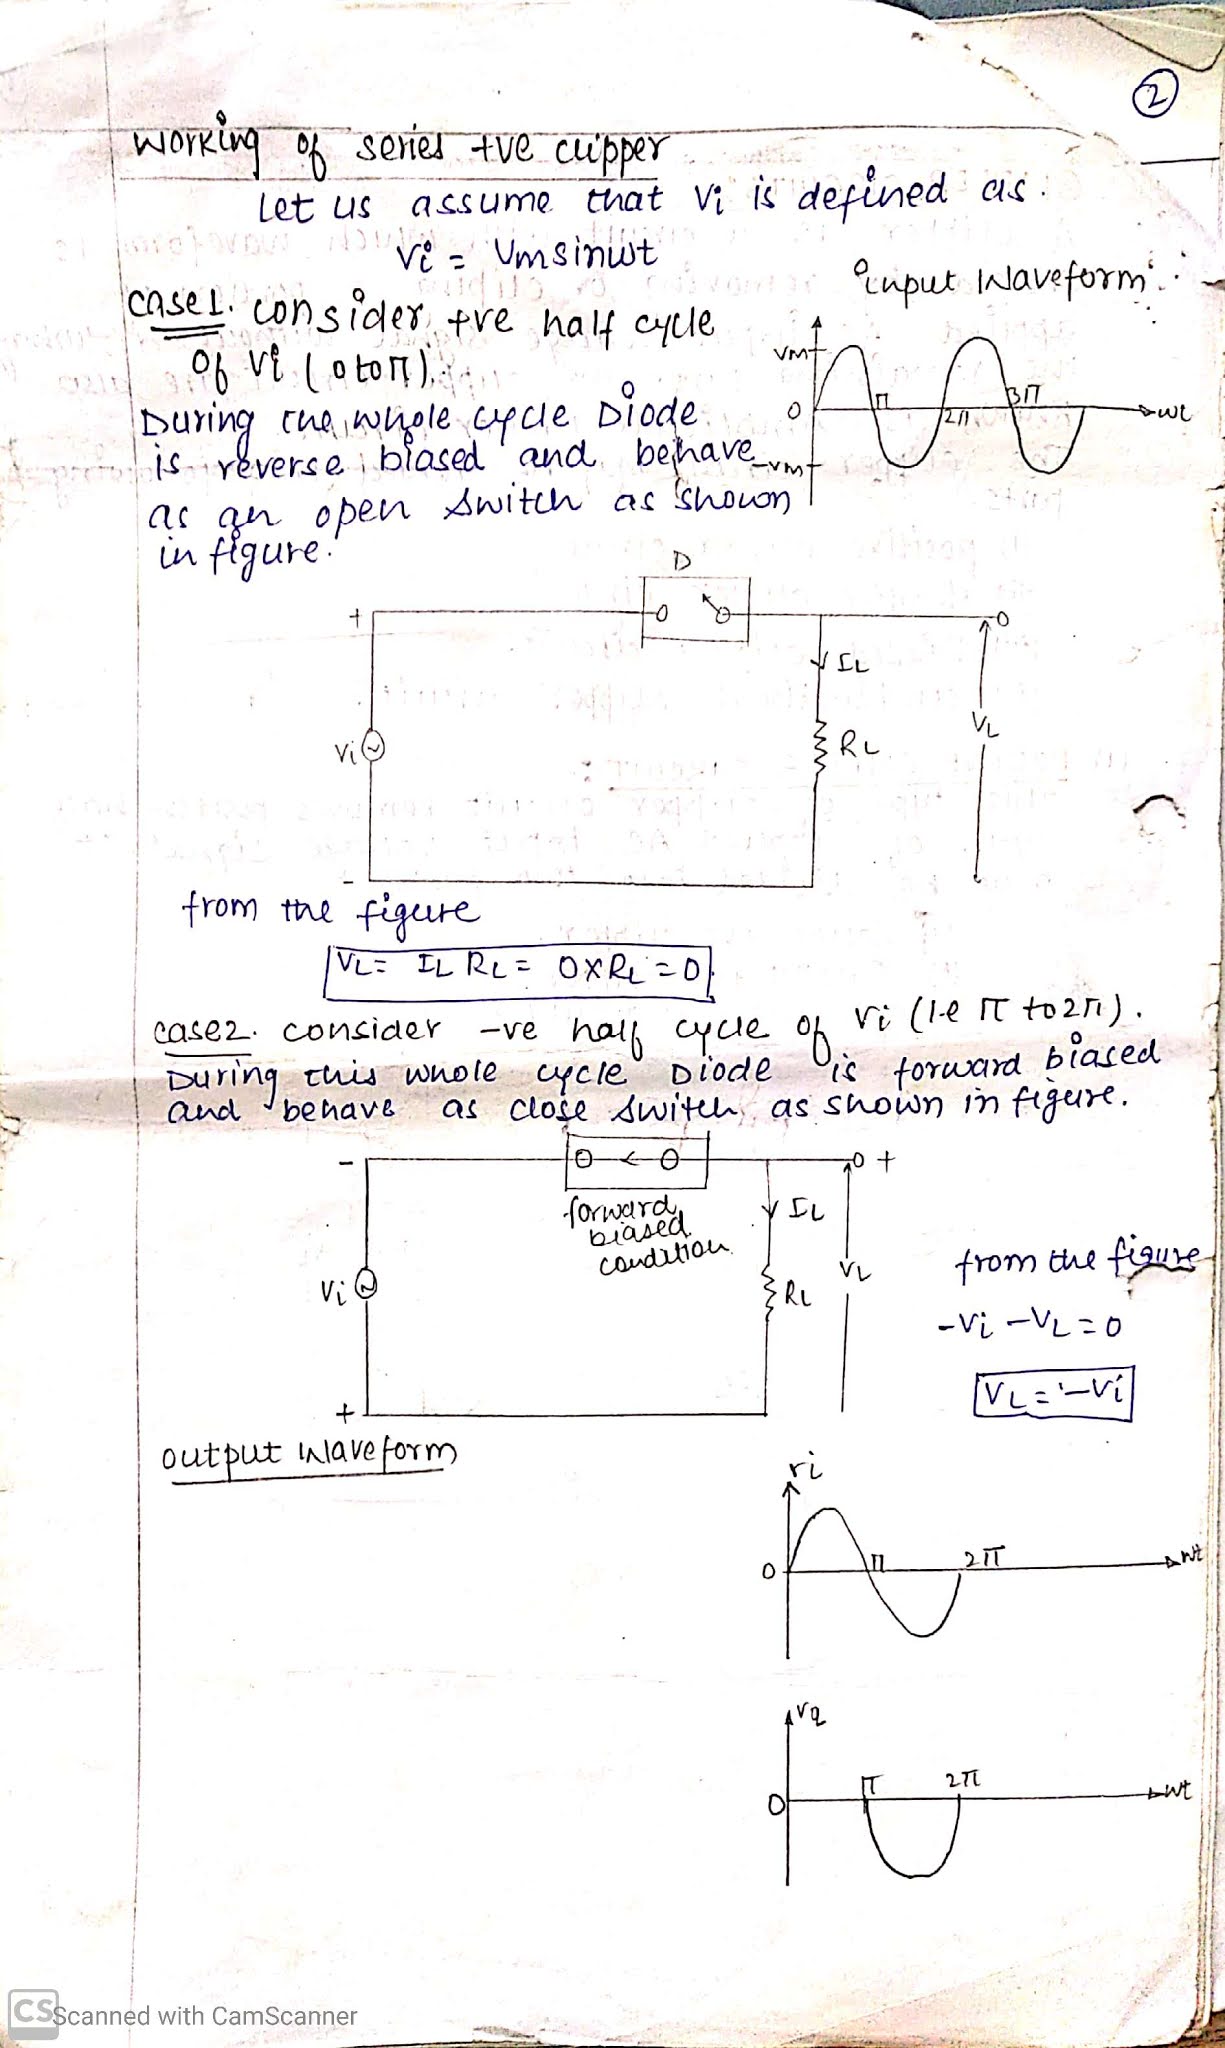 2
Working of series +ve clipper
Let us assume that Vi is defined as.
Vi = Vmsinwt
Input Waveform :
Case1. consider +ve half cycle
of Vi (0 to π).
During the whole cycle Diode
is reverse biased and behave
as an open switch as shown
in figure.
Vm
0
-Vm
π
2π
3π
wt
D
+
IL
Vi
RL
VL
-
from the figure
VL = IL RL = 0 X RL = 0
Case2. consider -ve half cycle of Vi (i-e π to 2π).
During this whole cycle Diode is forward biased
and behave as close switch as shown in figure.
-
+
forward
biased
condition
IL
Vi
RL
VL
+
from the figure
-Vi - VL = 0
VL = -Vi
output Waveform
vi
0
π
2π
wt
π
2π
0
wt
CS Scanned with CamScanner